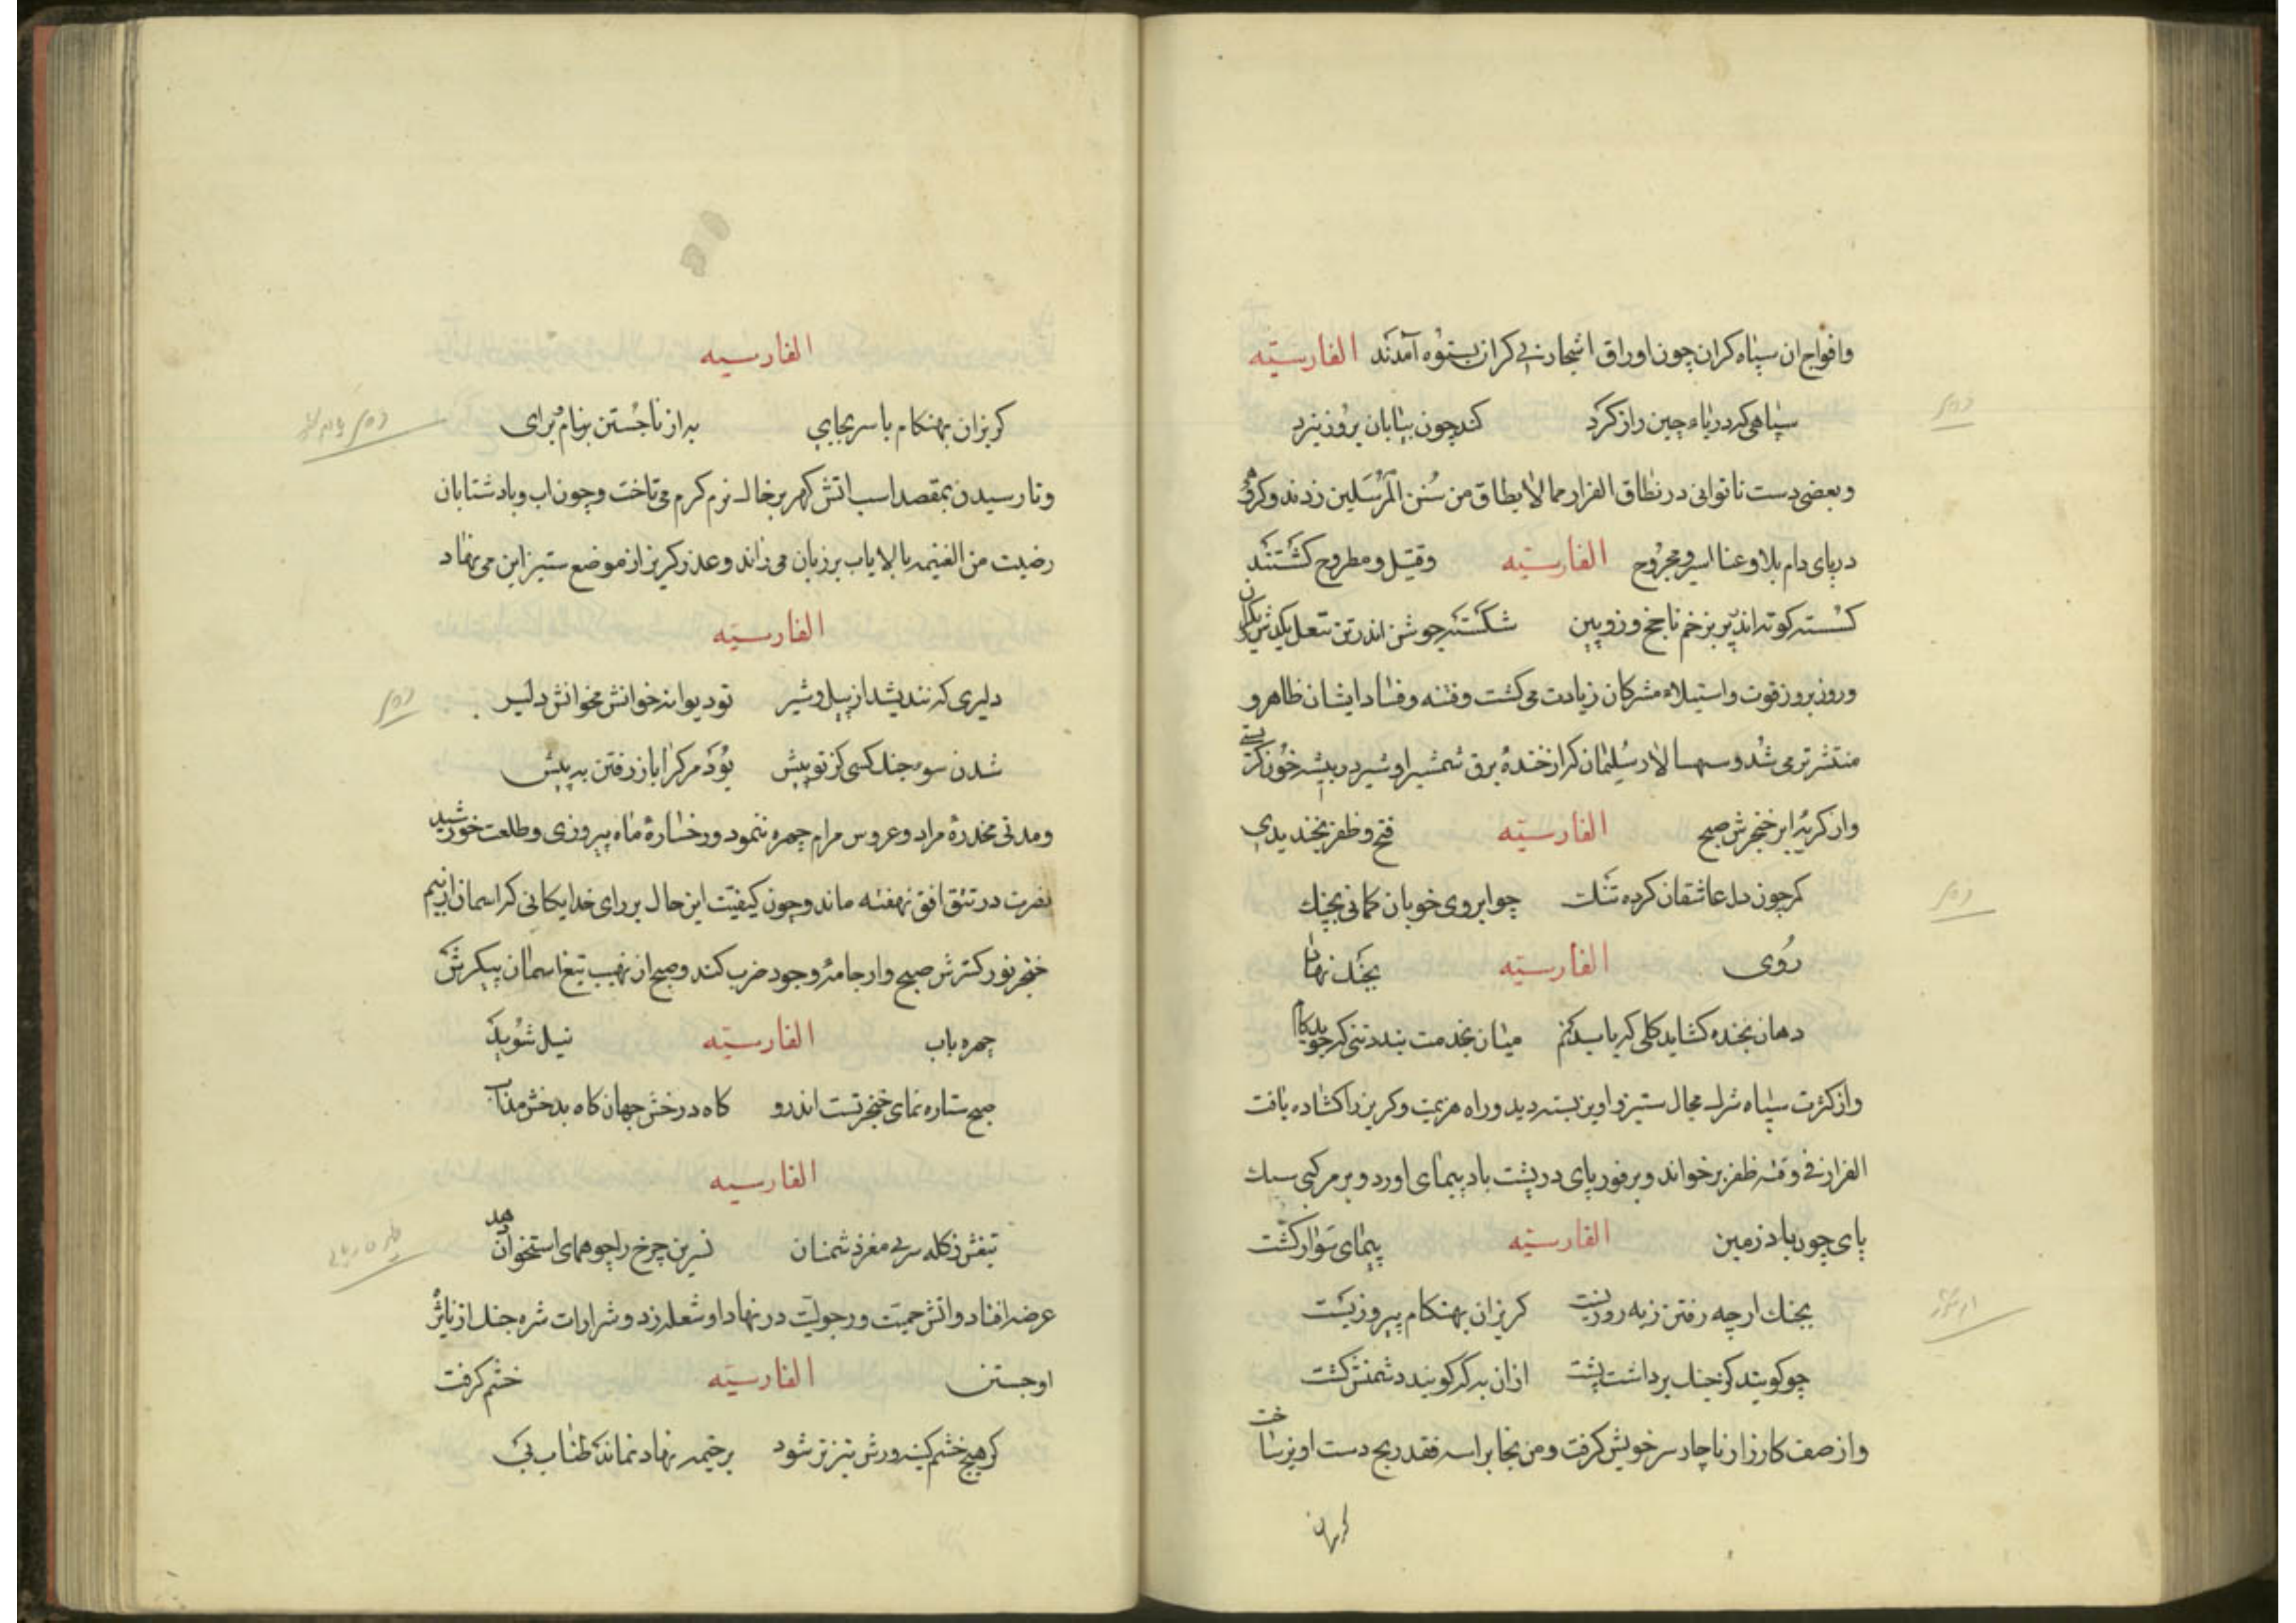 وافواج ان سپاه کران چون اوراق اشجار بی کران بستوه آمدند الفارسیّه
سپاهی که دریاء چین را ز کرد کند چون بیابان بروز نبرد
وبعضی دست ناتوانی در نطاق الفرار مما لا یطاق من سُنن المُرسَلین زدند وکروهی
در پای دام بلا وعنا اسیر ومجرُوح الفارسیّه وقتیل ومطروح کشتند
کسسته زخم ناجخ وزوپین شکسته جوشن اندر تن
وروز بروز قوت واستیلاء مشرکان زیادت می کشت وفتنه وفساد ایشان ظاهر و
منتشرتر می شد وسپهسالار سُلیمان که از خندهٔ برق شمشیر او شیر در بیشه خُون کرستی
واز کریهٔ ابر خنجرش صبح الفارسیّه فتح وظفر بخندیدی
کمر چون دل عاشقان کرده تنک چو ابروی خوبان کمانی بچنک
رُوی الفارسیّه بجنک نهاد
دهان بخنده کشاید کلی که یاسد کنم میان بخدمت بندد تنی که جوید کام
واز کثرت سپاه شرک مجال ستیز واویز بسته دید وراه هزیمت وکریز را کشاده یافت
الفرار فی وقته ظفر برخواند وبر فور پای در پشت باد پیمای اورد وبر مرکبی سبک
پای چون باد زمین الفارسیّه پیمای سوار کشت
بجنک ارچه رفتن ز به روزیست کریزان بهنکام پیروزیست
چو کویند کز جنک برداشت پشت از ان به که کویند دشمنش کشت
واز صف کارزار ناچار سر خویش کرفت ومن نجا براسه فقد ربح دست اویز ساخت
کریزان
الفارسیه
کریزان بهنکام با سر بجای به از نا جُستن بنام برای
وتا رسیدن بمقصد اسب اتش کهر بر خاک نرم کرم می تاخت وچون اب وباد شتابان
رضیت من الغنیمه بالایاب بر زبان می راند وعذر کریز از موضع ستیز این می نهاد
الفارسیّه
دلیری که نندیشد از پیل وشیر تو دیوانه خوانش مخوانش دلیر
شدن سوء جنک کسی کز تو پیش بُود مرک را باز رفتن به پیش
ومدتی مخدرهٔ مراد وعروس مرام چهره ننمود ورخسارهٔ ماه پیروزی وطلعت خورشید
نصرت در تتق افق نهفته ماند وچون کیفیّت این حال بر رای خدایکانی که اسمان از بیم
خنجر نور کسترش صبح وار جامهٔ وجود خرب کند وصبح از نهیب تیغ اسمان پیکرش
چهره باب الفارسیّه نیل شوید
صبح ستاره نمای خنجر تست اندرو کاه درخش جهان کاه بدخش مذاب
الفارسیه
تیغش ز کله سر بی مغز دشمنان نسرین چرخ را چو همای استخوان دهد
عرضه افتاد واتش حمیّت ورجولیّت در نهاد او شعله زد وشرارات شره جنک از تاثر
او جستن الفارسیّه خشم کرفت
کر هیچ خشم کینه ورش تیزتر شود بر خیمه نهاد نماند طناب پی